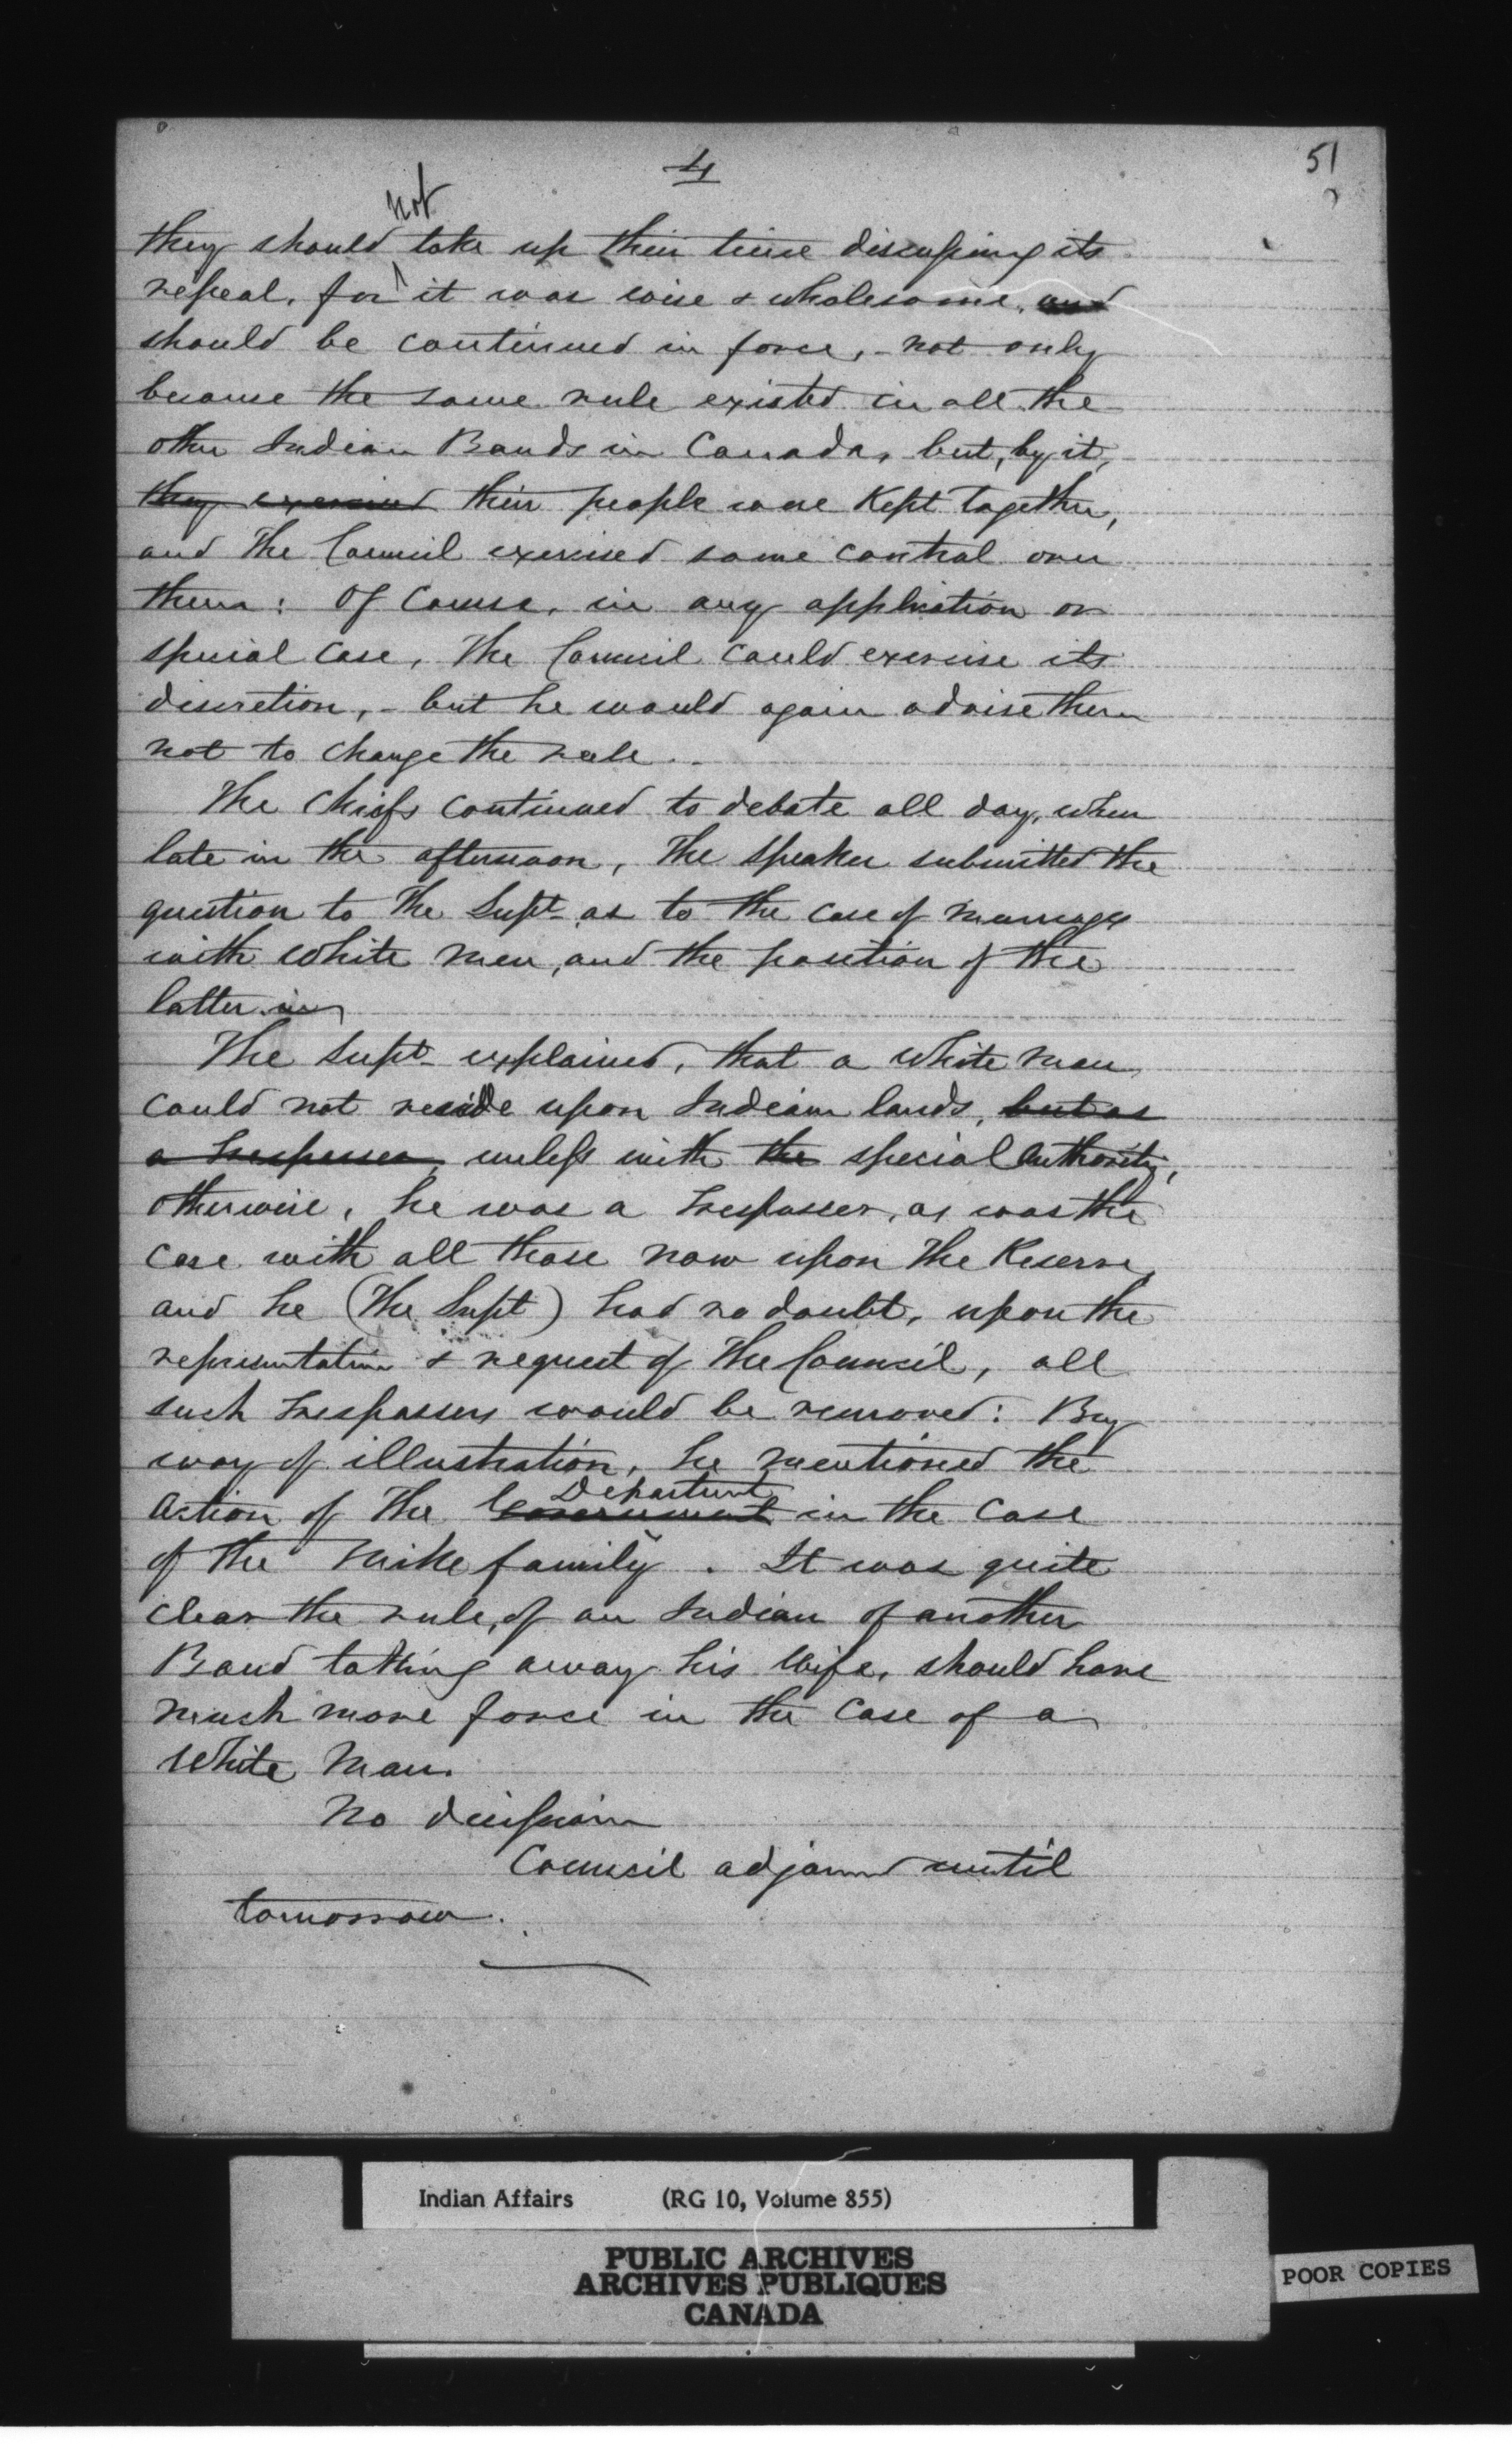 4
51
not
they should take up their time discussing its
repeal, for it was wise & wholesome, and
should be continued in force, - not only
because the same rule existed in all the
other Indian Bands in Canada, but, by it,
they exercised their people were Kept together,
and the Council exercised some control over
them: Of Course, in any application or
special case, the Council could exercise its
discretion, - but he would again advise them
not to change the rule.
The Chiefs continued to debate all day, when
late in the afternoon, the Speaker submitted the
question to the Supt as to the case of marriage
with White men, and the position of the
latter in
The Supt explained, that a White man
could not reside upon Indian lands, but as
a trespasser, unless with the special Authority,
otherwise, he was a trespasser, as was the
case with all those now upon the Reserve,
and he (The Supt) had no doubt, upon the
representation & request of the Council, all
such trespassers would be removed: By
way of illustration, he mentioned the
Department
Action of the Government in the Case
of the family. It was quite
clear the rule, of an Indian of another
Band taking away his Wife, should have
much more force in the Case of a
White Man.
No decision
Council adjourned until
tomorrow.
Indian Affairs (RG 10, Volume 855)
PUBLIC ARCHIVES
ARCHIVES PUBLIQUES
CANADA
POOR COPIES